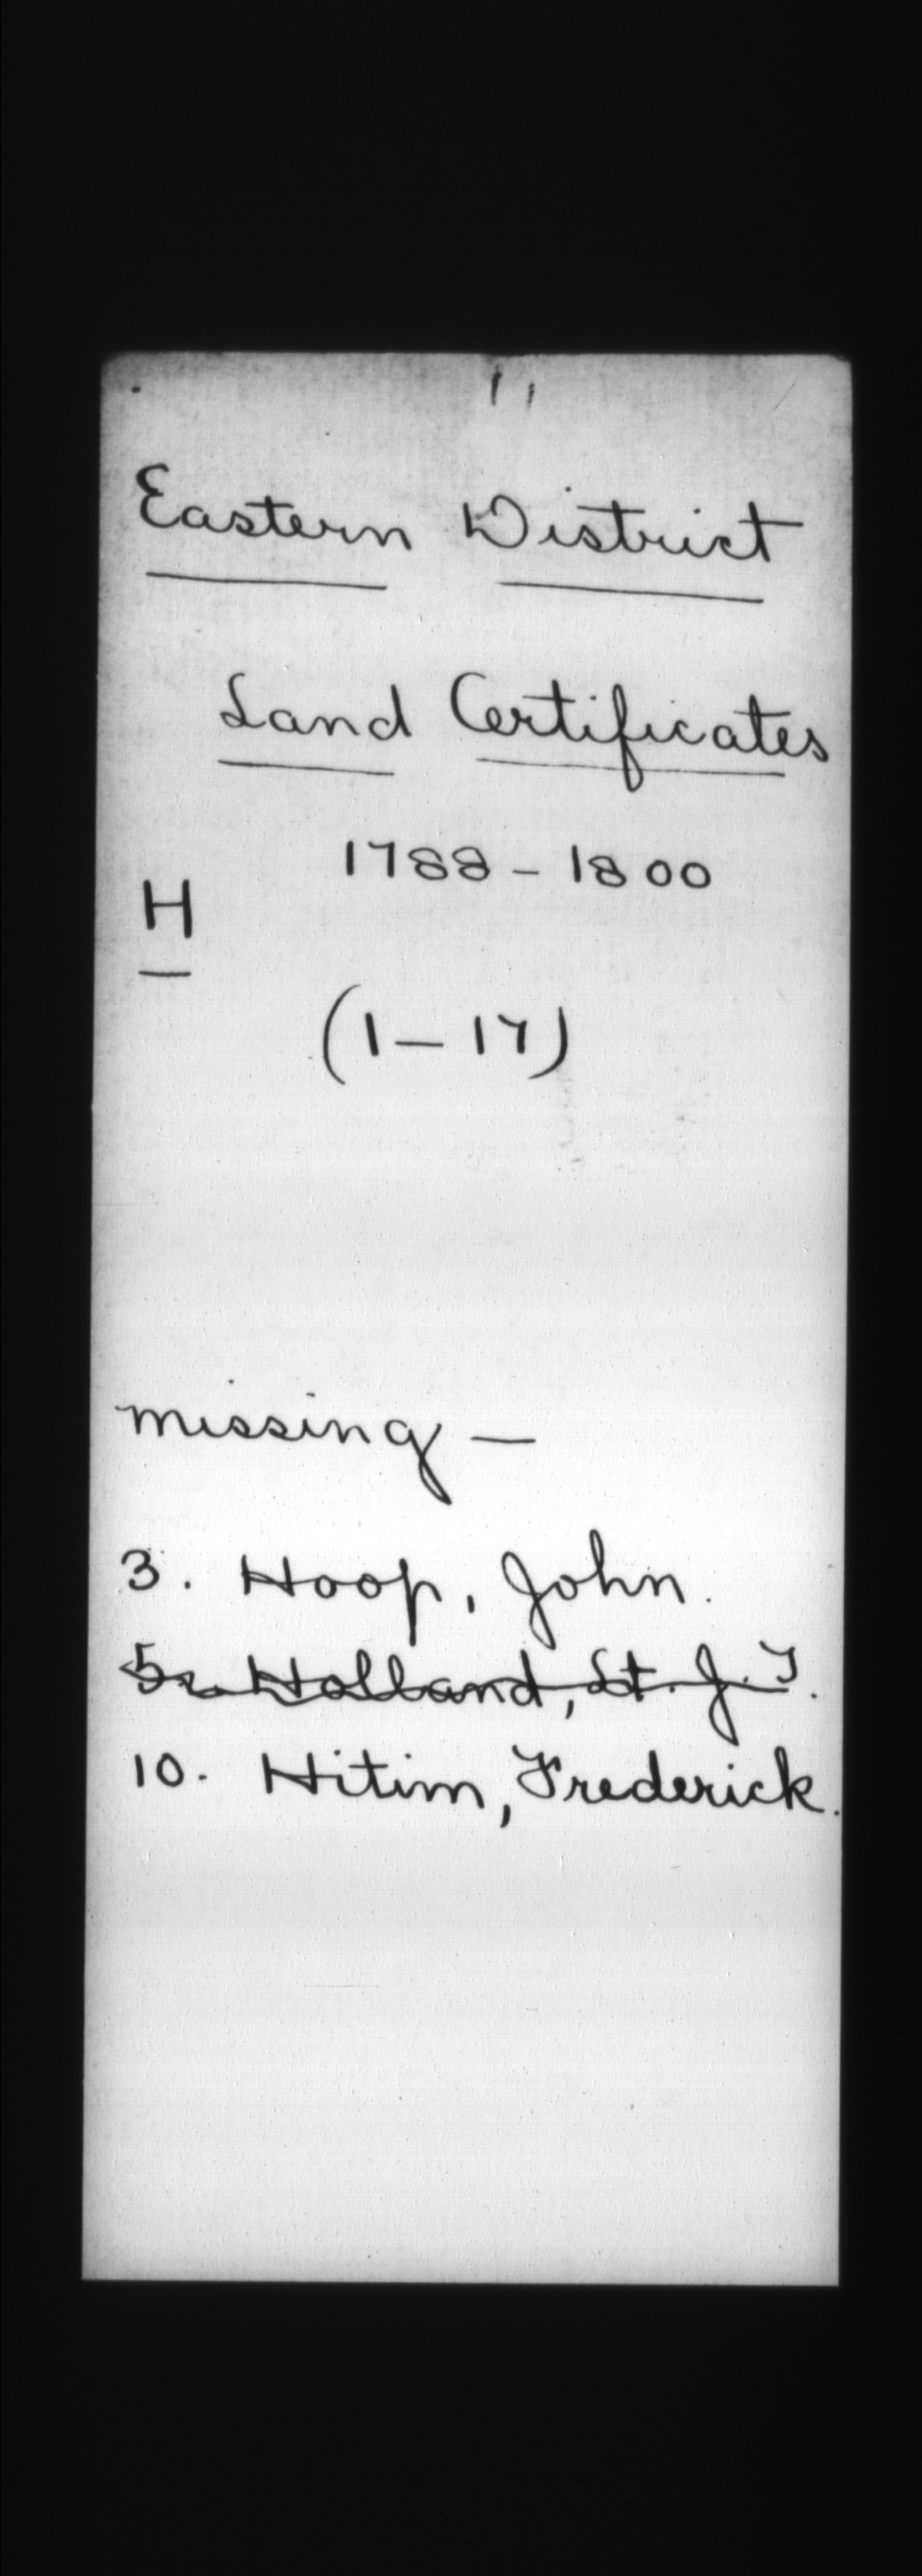 Eastern District
Land Certificates
1788 - 1800
H
(1 - 17)
missing -
3. Hoop, John.
5. Holland, Lt. J. F.
10. Hitim, Frederick.